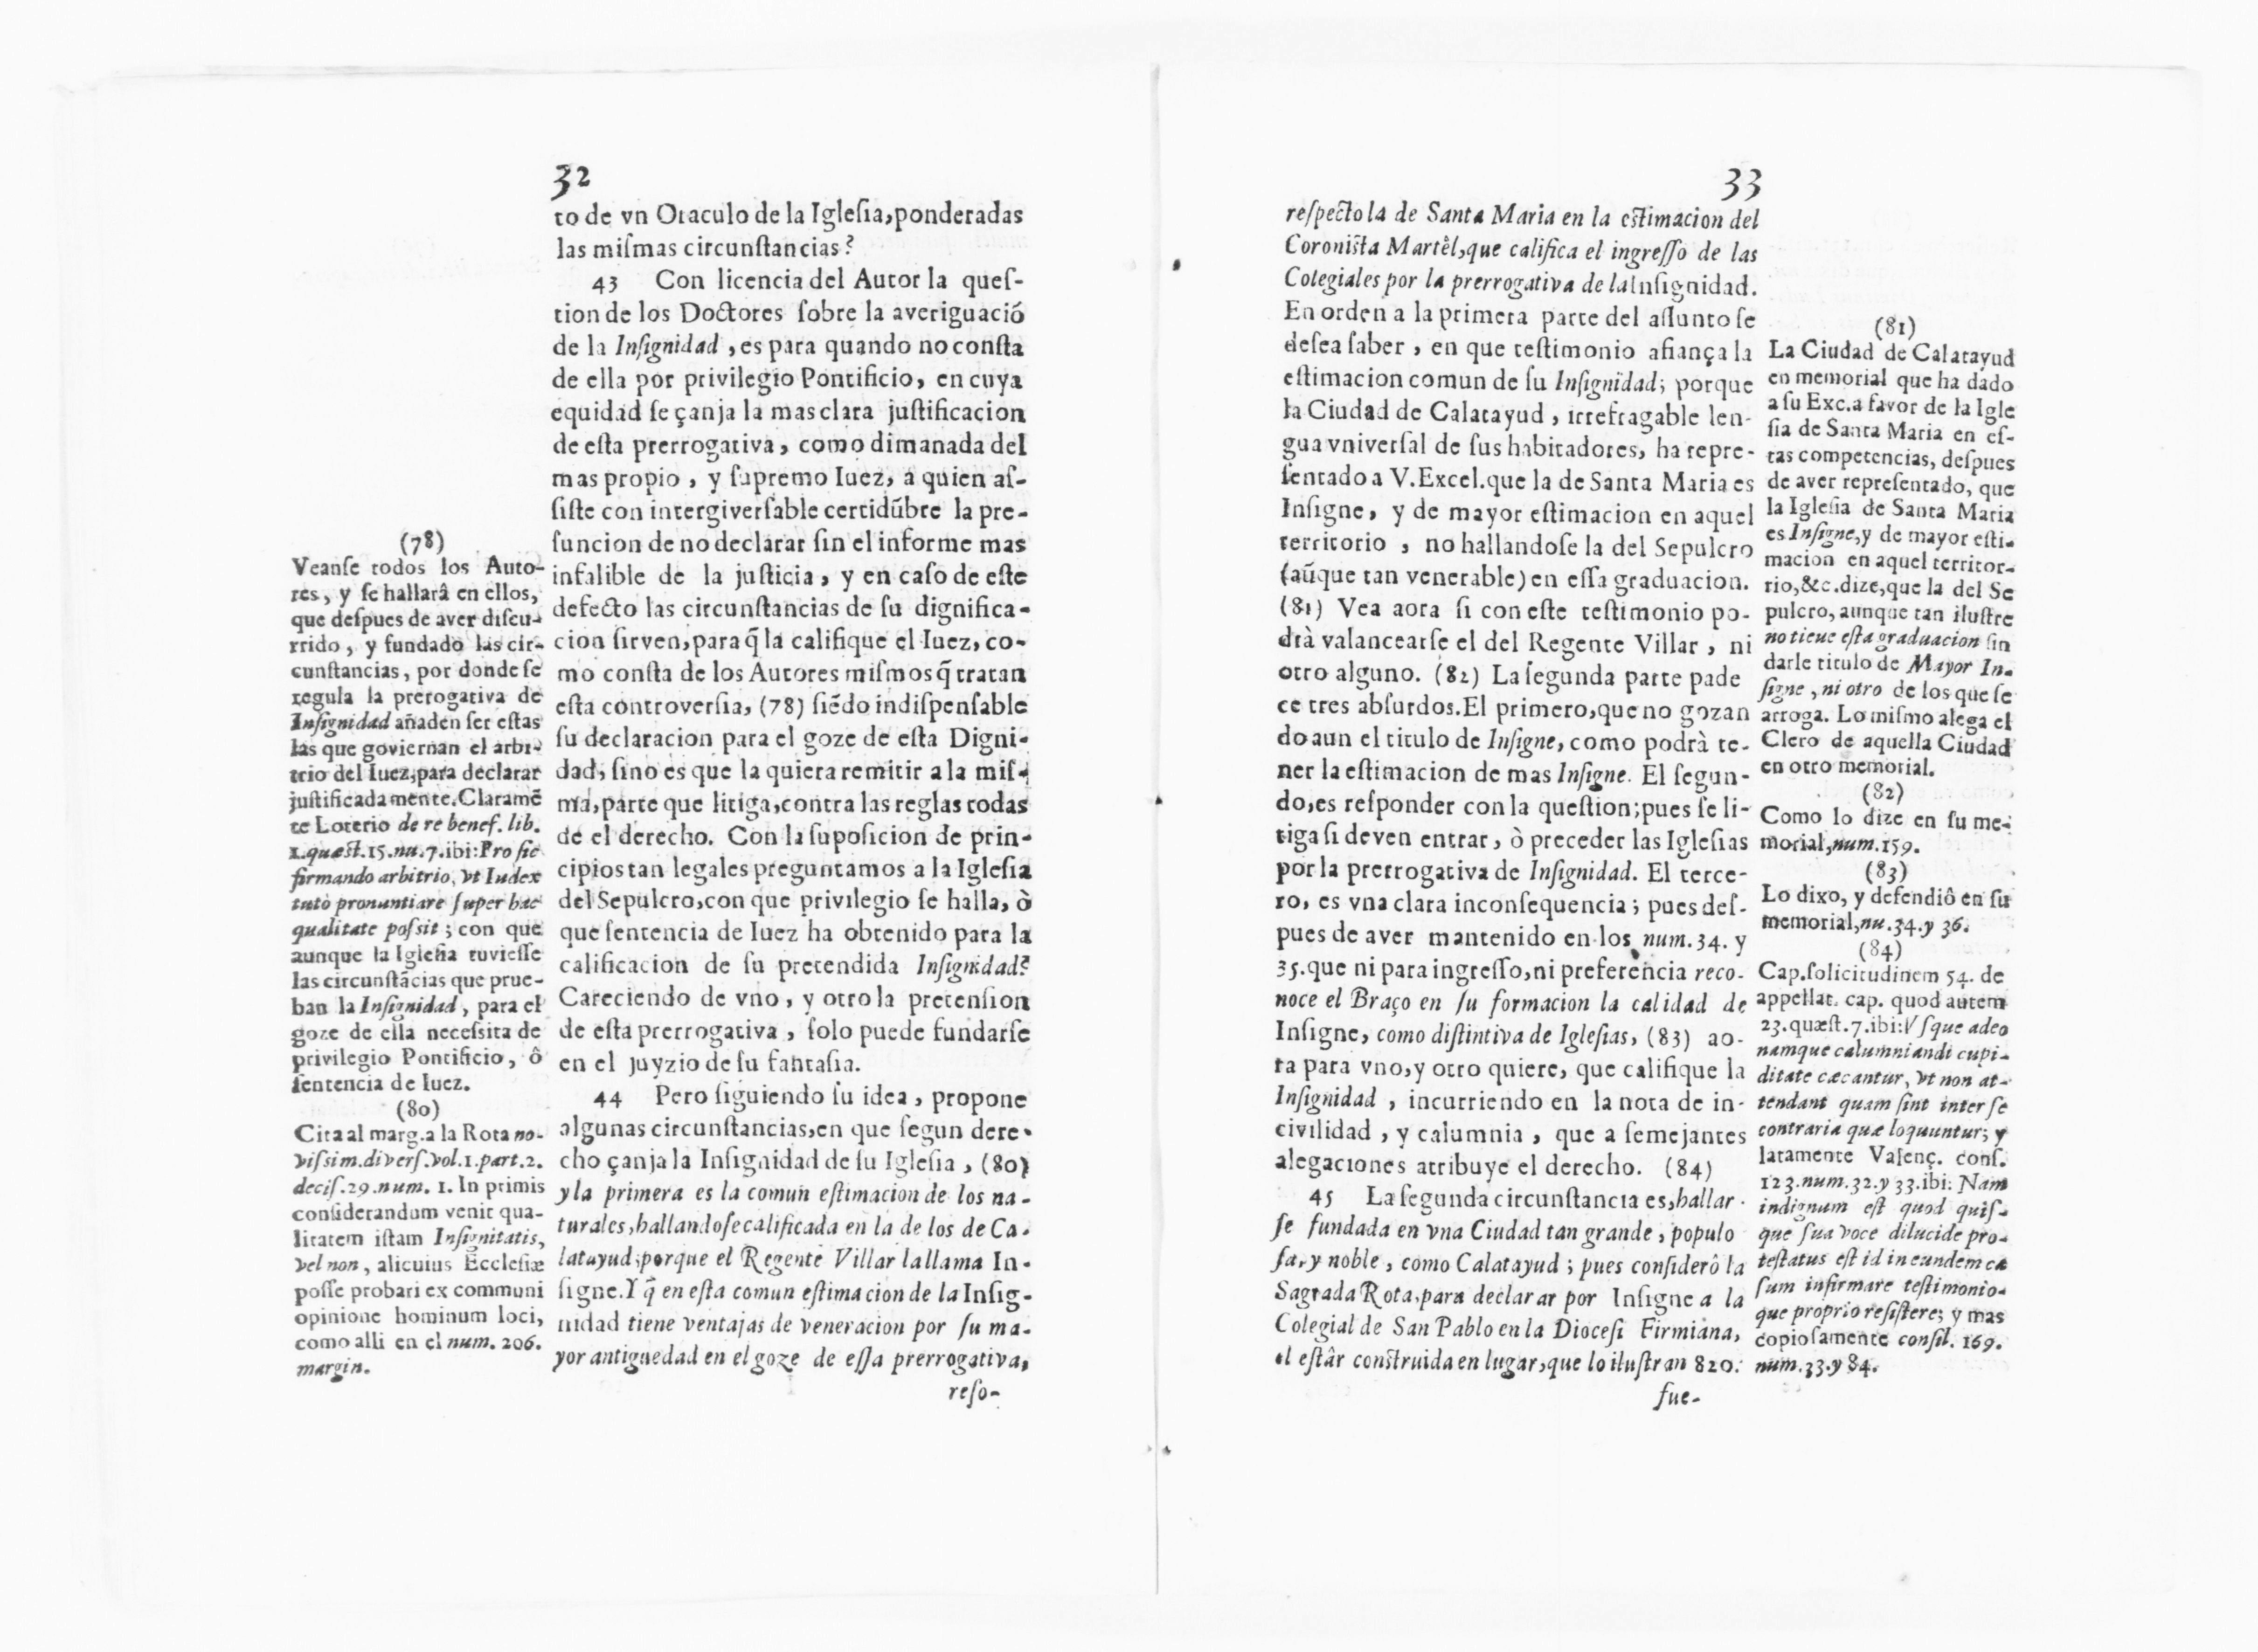 32
to de vn Oraculo de la Igleſia,ponderadas
las miſmas circunſtancias?
43 Con licencia del Autor la queſ-
tion de los Doctores ſobre la averiguació
de la Inſignidad , es para quando no conſta
de ella por privilegio Pontificio, en cuya
equidad ſe çanja la mas clara juſtificacion
de eſta prerrogativa, como dimanada del
mas propio , y ſupremo Iuez, a quien aſ-
ſiſte con intergiverſable certidũbre la pre-
ſuncion de no declarar ſin el informe mas
infalible de la juſticia, y en caſo de eſte
defecto las circunſtancias de ſu dignifica-
cion ſirven, para q̃ la califique el Iuez, co-
mo conſta de los Autores miſmos q̃ tratan
eſta controverſia, (78) ſiẽdo indiſpenſable
ſu declaracion para el goze de eſta Digni-
dad, ſino es que la quiera remitir a la miſ-
ma, parte que litiga, contra las reglas todas
de el derecho. Con la ſupoſicion de prin-
cipios tan legales preguntamos a la Igleſia
del Sepulcro, con que privilegio ſe halla, ò
que ſentencia de Iuez ha obtenido para la
calificacion de ſu pretendida Inſignidad?
Careciendo de vno, y otro la pretenſion
de eſta prerrogativa , ſolo puede fundarſe
en el juyzio de ſu fantaſia.
44 Pero ſiguiendo ſu idea , propone
algunas circunſtancias, en que ſegun dere-
cho çanja la Inſignidad de ſu Igleſia , (80)
y la primera es la comun eſtimacion de los na-
turales, hallandoſe calificada en la de los de Ca-
latayud; porque el Regente Villar la llama In-
ſigne. Y q̃ en eſta comun eſtimacion de la Inſig-
nidad tiene ventajas de veneracion por ſu ma-
yor antiguedad en el goze de eſſa prerrogativa,
reſo-
(78)
Veanſe todos los Auto-
res, y ſe hallarâ en ellos,
que deſpues de aver diſcu-
rrido , y fundado las cir-
cunſtancias, por donde ſe
regula la prerogativa de
Inſignidad añaden ſer eſtas
las que goviernan el arbi-
trio del Iuez, para declarar
juſtificadamente. Claramẽ
te Loterio de re benef. lib.
1. quæſt. 15. nu. 7. ibi: Pro ſic
firmando arbitrio, vt Iudex
tutò pronuntiare ſuper hac
qualitate poſsit ; con que
aunque la Igleſia tuvieſſe
las circunſtãcias que prue-
ban la Inſignidad, para el
goze de ella neceſsita de
privilegio Pontificio, ô
ſentencia de Iuez.
(80)
Cita al marg. a la Rota no-
viſsim. diverſ. vol. 1. part. 2.
deciſ. 29. num. 1. In primis
conſiderandum venit qua-
litatem iſtam Inſignitatis,
vel non, alicuius Eccleſiæ
poſſe probari ex communi
opinione hominum loci,
como alli en el num. 206.
margin.
33
reſpecto la de Santa Maria en la eſtimacion del
Coroniſta Martèl, que califica el ingreſſo de las
Colegiales por la prerrogativa de la Inſignidad.
En orden a la primera parte del aſſunto ſe
deſea ſaber , en que teſtimonio afiança la
eſtimacion comun de ſu Inſignidad; porque
la Ciudad de Calatayud , irrefragable len-
gua vniverſal de ſus habitadores, ha repre-
ſentado a V. Excel. que la de Santa Maria es
Inſigne, y de mayor eſtimacion en aquel
territorio , no hallandoſe la del Sepulcro
(aũque tan venerable) en eſſa graduacion.
(81) Vea aora ſi con eſte teſtimonio po-
drà valancearſe el del Regente Villar , ni
otro alguno. (82) La ſegunda parte pade
ce tres abſurdos. El primero, que no gozan
do aun el titulo de Inſigne, como podrà te-
ner la eſtimacion de mas Inſigne. El ſegun-
do, es reſponder con la queſtion; pues ſe li-
tiga ſi deven entrar, ò preceder las Igleſias
por la prerrogativa de Inſignidad. El terce-
ro, es vna clara inconſequencia; pues deſ-
pues de aver mantenido en los num. 34. y
35. que ni para ingreſſo, ni preferencia reco-
noce el Braço en ſu formacion la calidad de
Inſigne, como diſtintiva de Igleſias, (83) ao-
ra para vno, y otro quiere, que califique la
Inſignidad , incurriendo en la nota de in-
civilidad , y calumnia , que a ſemejantes
alegaciones atribuye el derecho. (84)
45 La ſegunda circunſtancia es, hallar-
ſe fundada en vna Ciudad tan grande , populo
ſa, y noble , como Calatayud ; pues conſiderô la
Sagrada Rota, para declarar por Inſigne a la
Colegial de San Pablo en la Dioceſi Firmiana,
el eſtâr conſtruida en lugar, que lo iluſtran 820.
fue-
(81)
La Ciudad de Calatayud
en memorial que ha dado
a ſu Exc. a favor de la Igle
ſia de Santa Maria en eſ-
tas competencias, deſpues
de aver repreſentado, que
la Igleſia de Santa Maria
es Inſigne, y de mayor eſti-
macion en aquel territor-
rio, &c. dize, que la del Se
pulcro, aunque tan iluſtre
no tiene eſta graduacion ſin
darle titulo de Mayor In-
ſigne , ni otro de los que ſe
arroga. Lo miſmo alega el
Clero de aquella Ciudad
en otro memorial.
(82)
Como lo dize en ſu me-
morial, num. 159.
(83)
Lo dixo, y defendiô en ſu
memorial, nu. 34. y 36.
(84)
Cap. ſolicitudinem 54. de
appellat. cap. quod autem
23. quæſt. 7. ibi: Vſque adeo
namque calumniandi cupi-
ditate cæcantur, vt non at-
tendant quam ſint inter ſe
contraria quæ loquuntur; y
latamente Valenç. conſ.
123. num. 32. y 33. ibi: Nam
indignum eſt quod quiſ-
que ſua voce dilucide pro-
teſtatus eſt id in eundem ca
ſum infirmare teſtimonio-
que proprio reſiſtere; y mas
copioſamente conſil. 169.
num. 33. y 84.